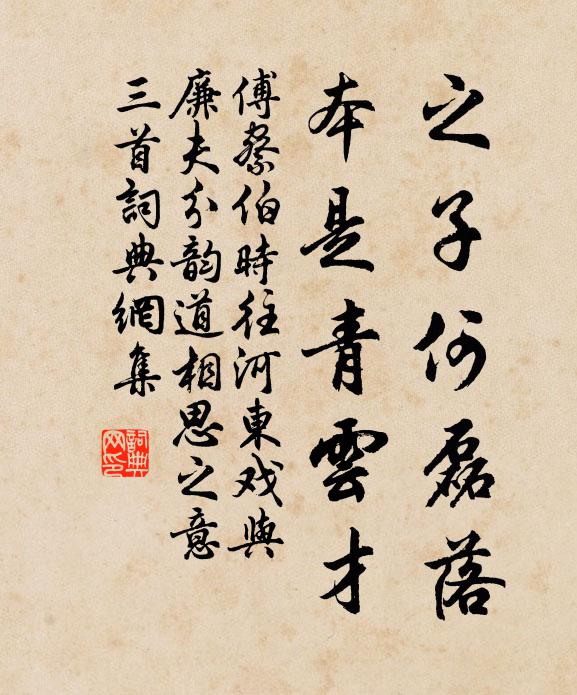 之子何磊落
本是青雲才
傅察伯時往河東戏與
廉夫分韵道相思之意
三首詞典網集
詞典
网印